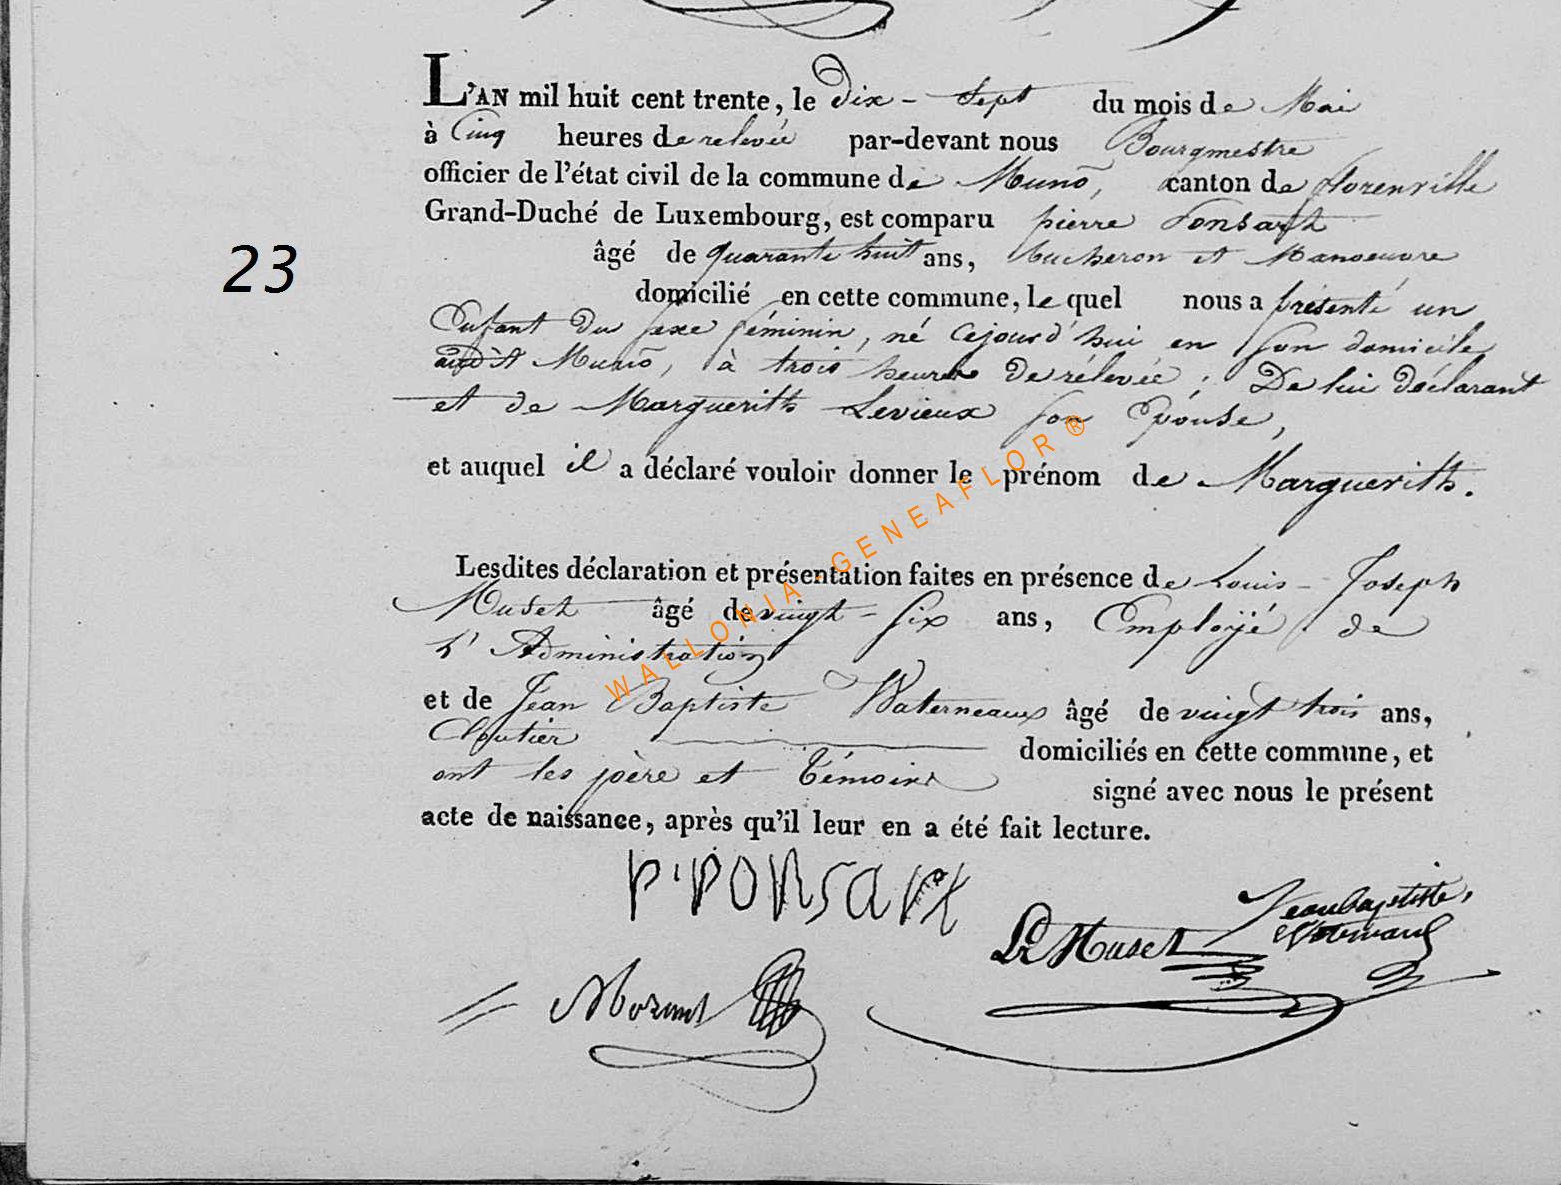 L'AN mil huit cent trente, le Dix-Sept du mois de Mai
à Cinq heures de relevée par-devant nous Bourgmestre
officier de l'état civil de la commune de Muno, canton de florenville
Grand-Duché de Luxembourg, est comparu pierre Ponsart
23
âgé de quarante huit ans, bucheron et Manoeuvre
domicilié en cette commune, le quel nous a présenté un
Enfant du sexe féminin, né Cejourd'hui en son domicile
audit Muno, à trois heures de rélevée; De lui déclarant
et de Marguerith Levieux son Epouse,
et auquel il a déclaré vouloir donner le prénom de Marguerith.
WALLONIA-GENEAFLOR ®
Lesdites déclaration et présentation faites en présence de Louis-Joseph
Muset âgé de vingt-six ans, Employé de
L'Administration
et de Jean Baptiste Waterneaux âgé de vingt trois ans,
Cloutier domiciliés en cette commune, et
ont les père et Témoins signé avec nous le présent
acte de naissance, après qu'il leur en a été fait lecture.
P. PONSART
Jean baptiste
L Muset